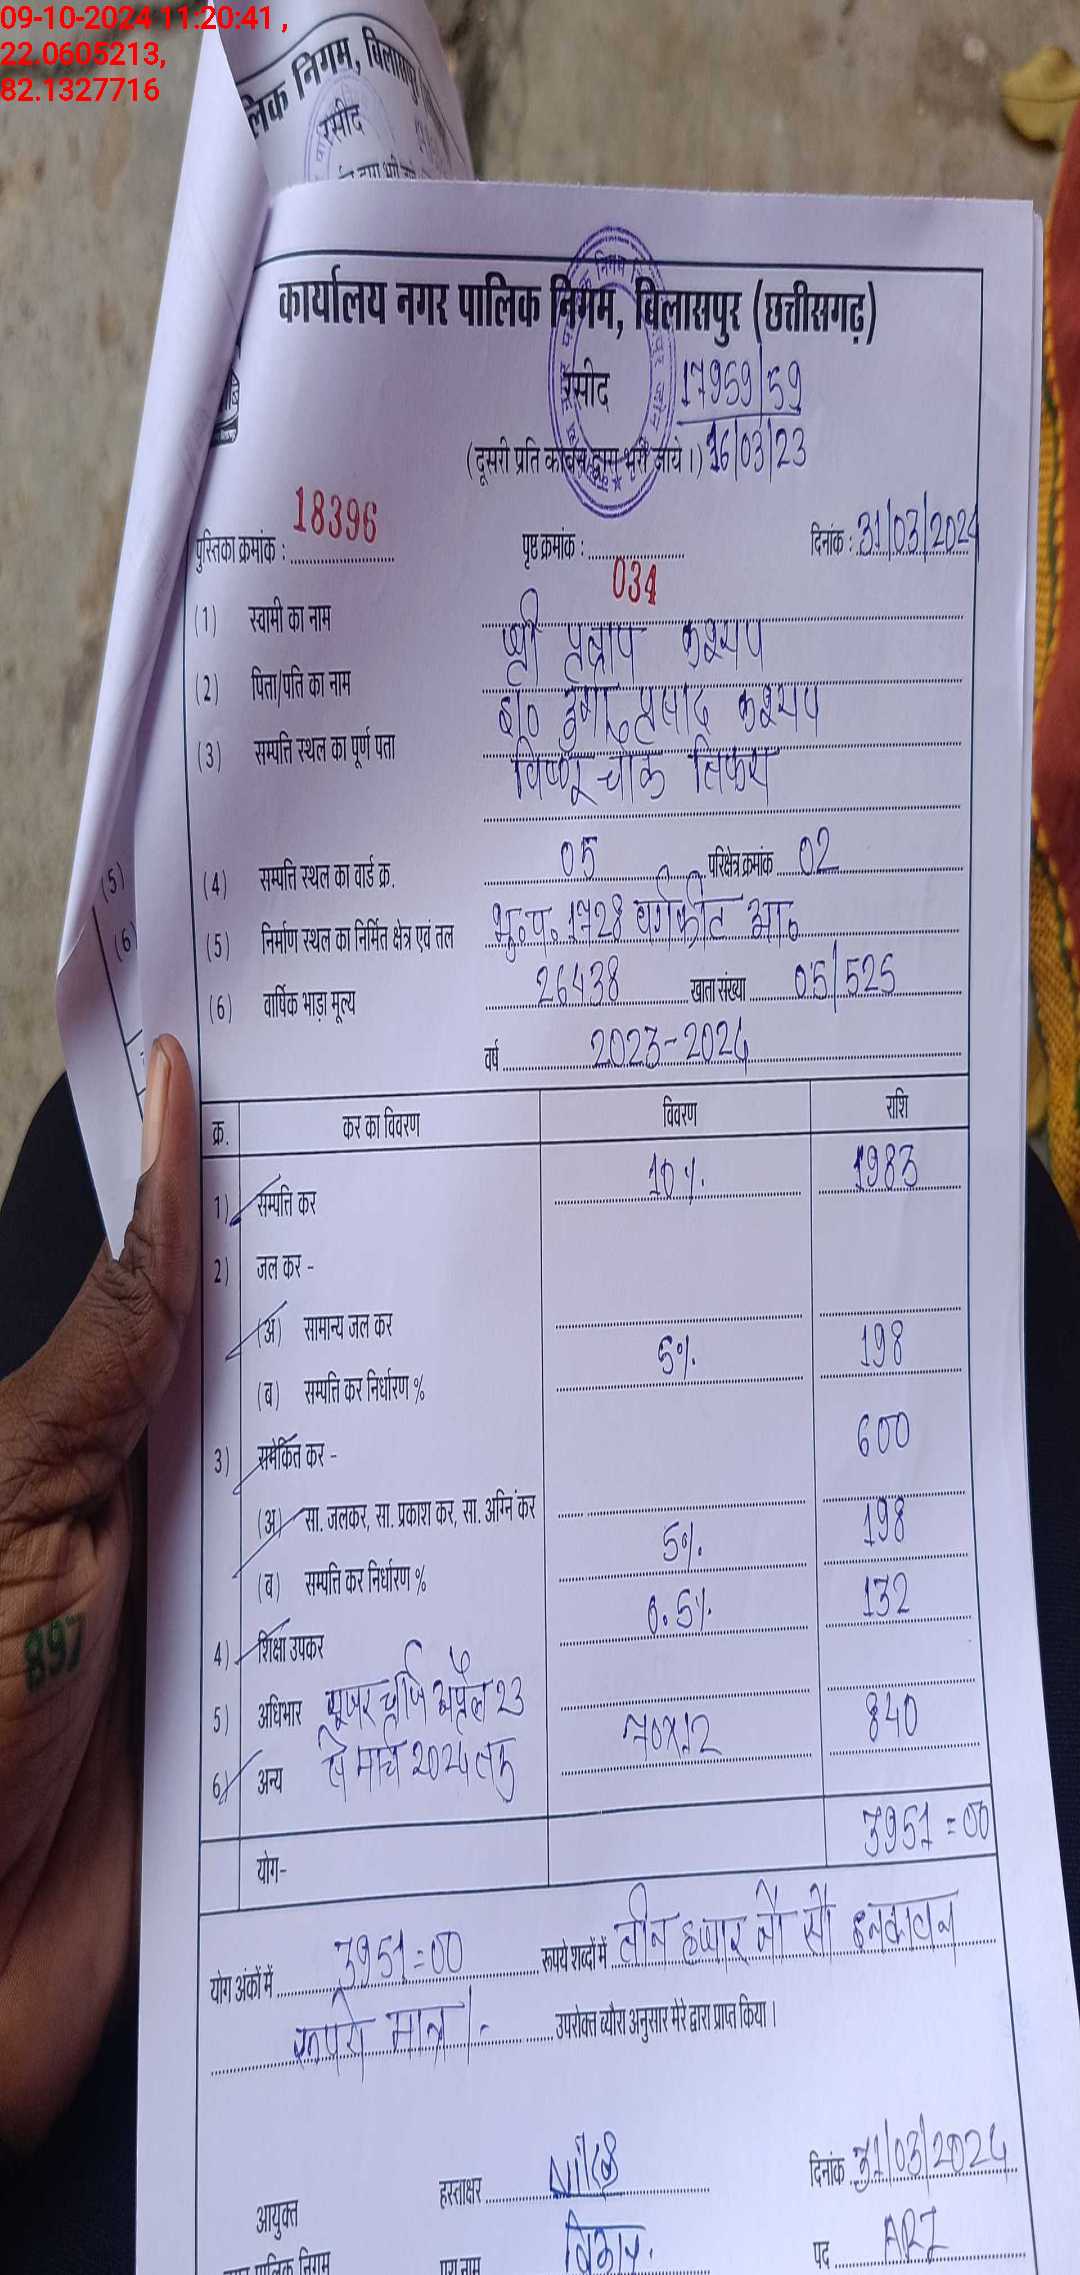 09-10-2024 11:20:41 ,
22.0605213,
82.1327716
लिक निगम, बिलासपुर
रसीद
कार्यालय नगर पालिक निगम, बिलासपुर (छत्तीसगढ़)
रसीद 17959/59
(दूसरी प्रति कार्बन द्वारा भरी जाये।) 16/03/23
पुस्तिका क्रमांक : 18396 पृष्ठ क्रमांक : 034 दिनांक : 31/03/2024
(1) स्वामी का नाम श्री प्रताप कश्यप
(2) पिता/पति का नाम दुर्गा प्रसाद कश्यप
(3) सम्पत्ति स्थल का पूर्ण पता विष्णू चौक तिफरा
(4) सम्पत्ति स्थल का वार्ड क्र. 05 परिक्षेत्र क्रमांक 02
(5) निर्माण स्थल का निर्मित क्षेत्र एवं तल भू.प. 1728 वर्गफीट आ०
(6) वार्षिक भाड़ा मूल्य 26438 खाता संख्या 05/525
वर्ष 2023-2024
क्र. कर का विवरण विवरण राशि
1) सम्पत्ति कर 10%. 1983
2) जल कर -
(अ) सामान्य जल कर
(ब) सम्पत्ति कर निर्धारण % 5%. 198
3) समेकित कर - 600
(अ) सा. जलकर, सा. प्रकाश कर, सा. अग्नि कर
(ब) सम्पत्ति कर निर्धारण % 5%. 198
4) शिक्षा उपकर 0.5%. 132
5) अधिभार यूजर चार्ज अप्रैल 23
6) अन्य से मार्च 2024 तक 70x12 840
योग- 3951=00
योग अंकों में 3951=00 रूपये शब्दों में तीन हजार नौ सौ इनकावन
रूपये मात्र/- उपरोक्त ब्यौरा अनुसार मेरे द्वारा प्राप्त किया।
हस्ताक्षर दिनांक 31/03/2024
आयुक्त
पालिक निगम नाम पद ARI
(5)
(6)
897